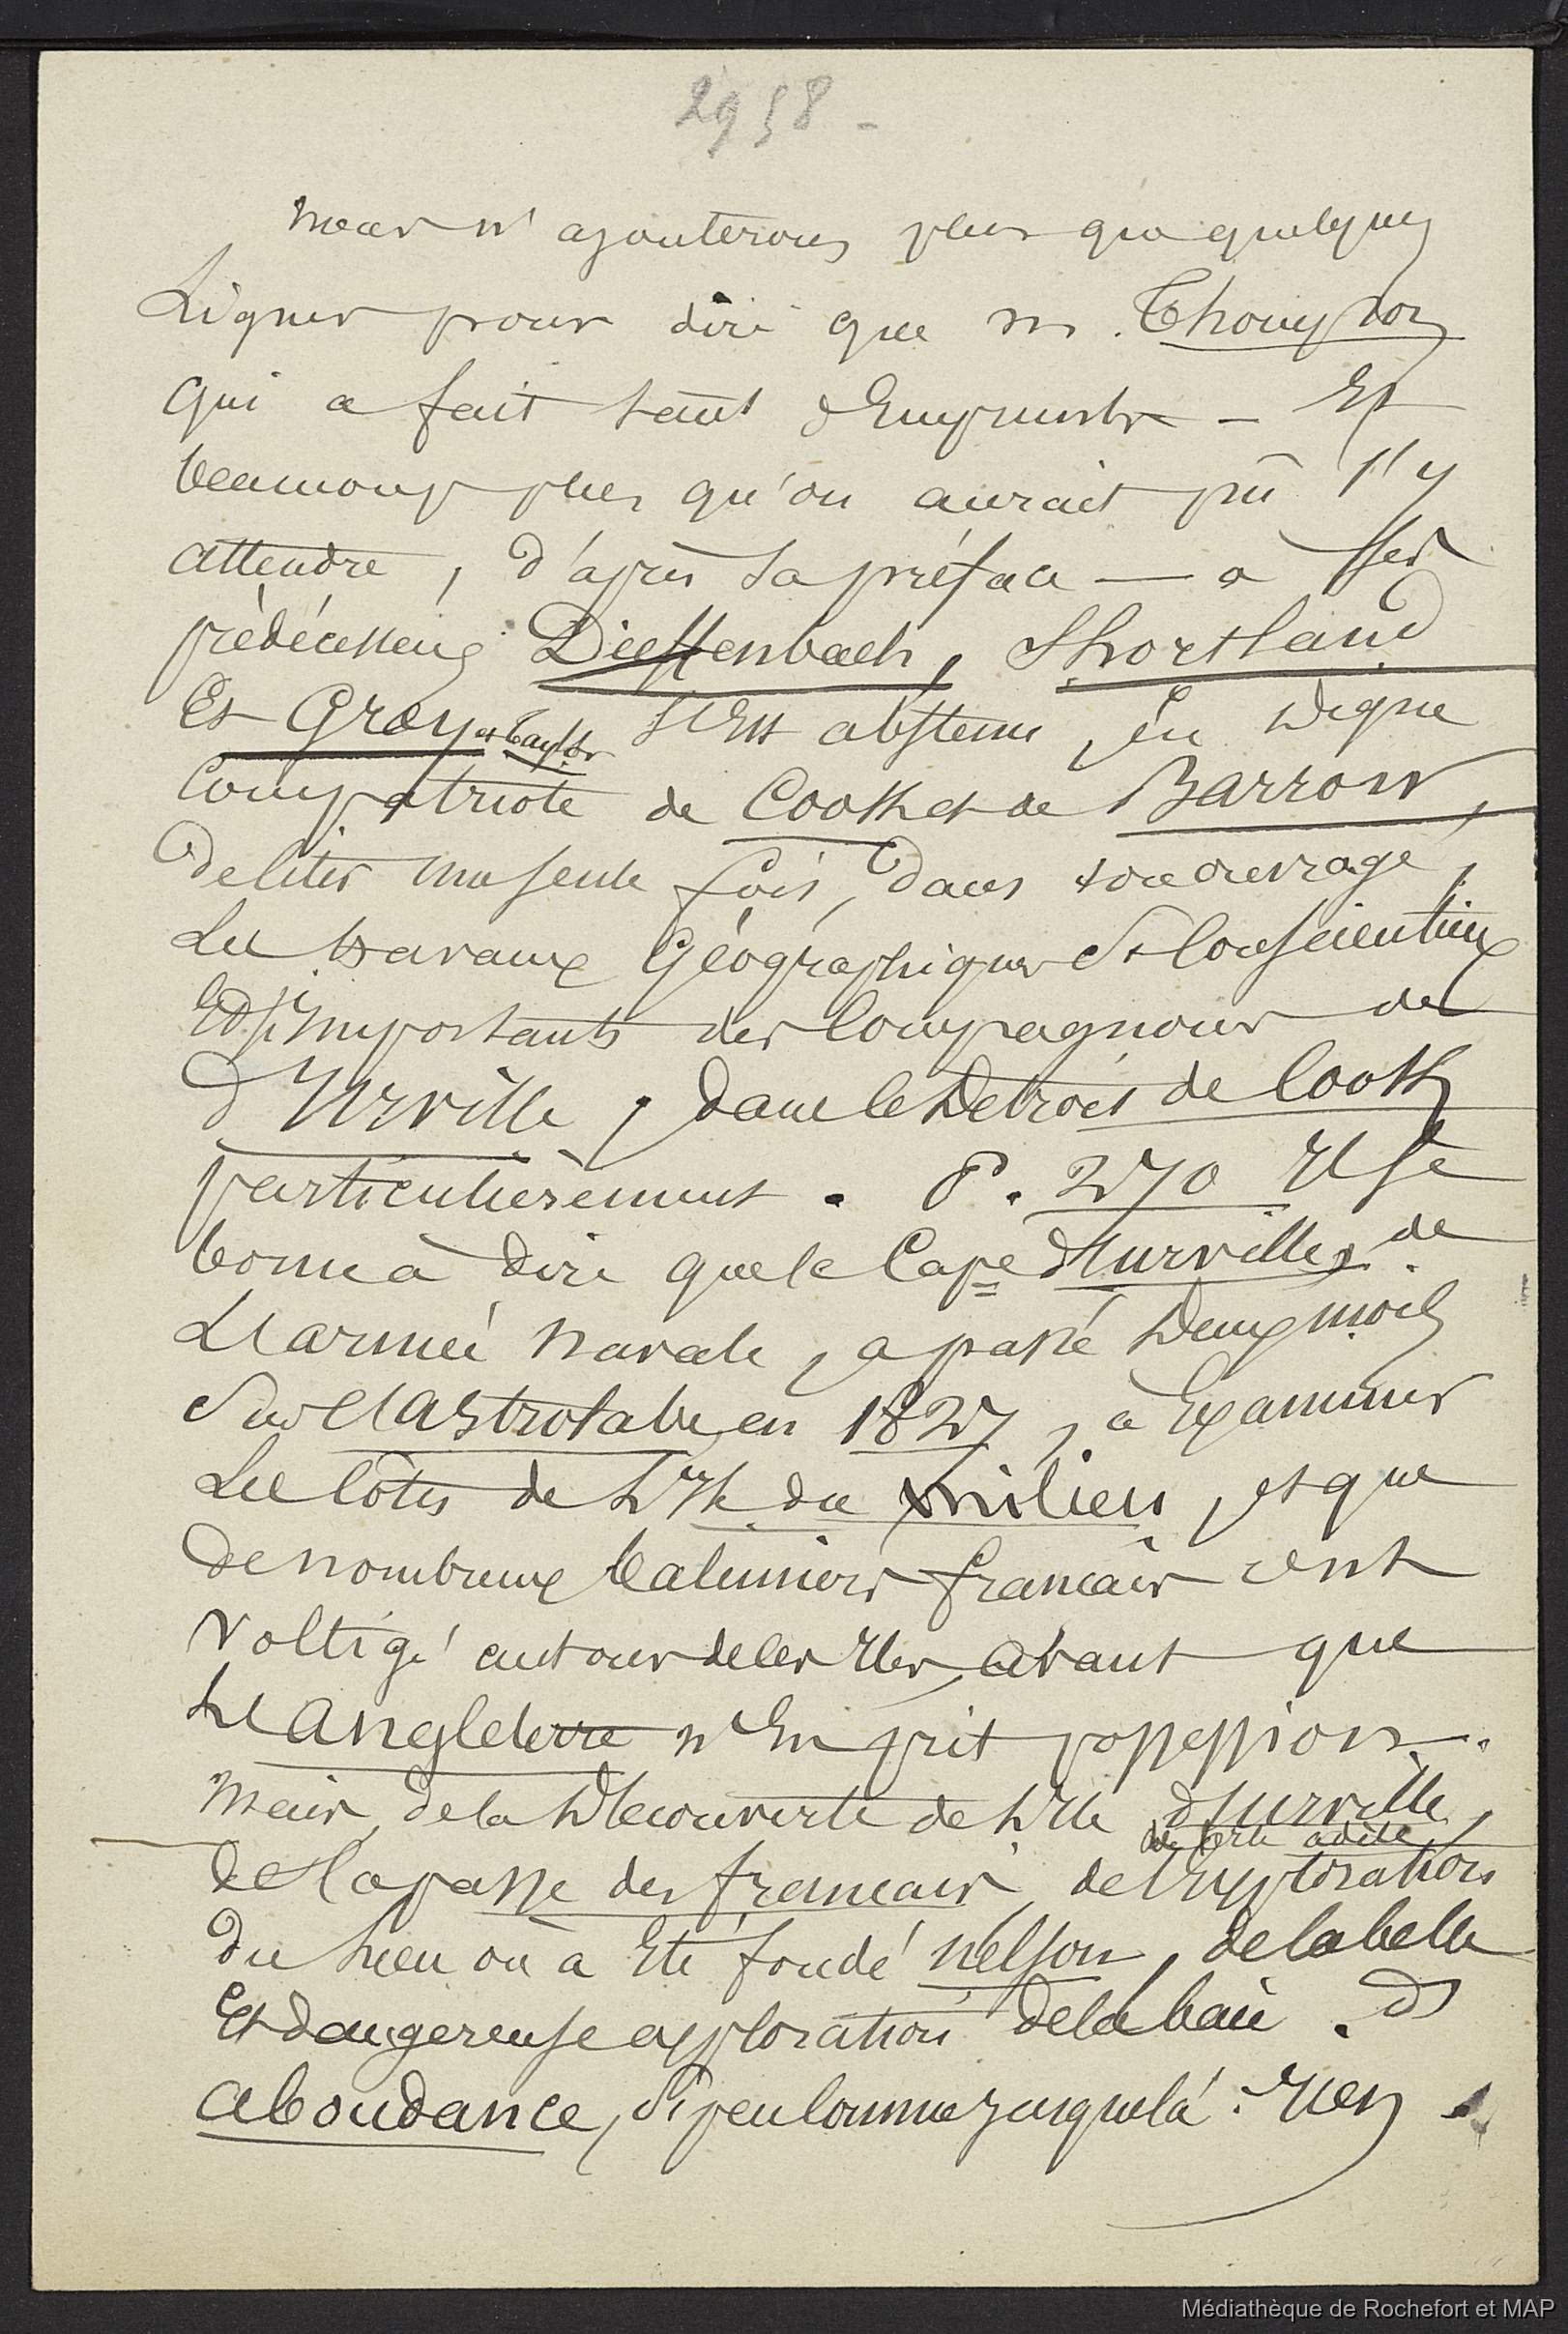 2958 -
nous n'ajouterons plus que quelques
Lignes pour dire que M. Thompson
qui a fait tant d'Emprunts - Et
beaucoup plus qu'on aurait pû s'y
attendre, d'après sa préface — à ses
prédécesseurs Dieffenbach, Shortland
Et Grey et Taylor s'Est abstenu, en digne
Compatriote de Cook et de Barrow,
de citer une seule fois, dans son ouvrage,
Les travaux Géographiques Si Consciencieux
Et si Importants des Compagnons de
d'Urville, dans le Détroit de Cook
particulièrement. P. 270 Il se
borne à dire que le Cape d'Urville, de
L'armée navale, a passé deux mois
Sur l'Astrolabe, en 1827, à Examiner
Les Côtes de L'Ile du milieu, et que
de nombreux Baleiniers français ont
voltigé autour de les Iles, avant que
L'Angleterre n'En prit possession.
mais, de la Découverte de L'Ile d'Urville,
de l'Ile adèle,
de La passe des français, de l'Exploration
du Lieu où a Eté fondé Nelson, de la belle
Et dangereuse exploration de la baie. D
abondance, Si peu connue jusque là : Rien
Médiathèque de Rochefort et MAP